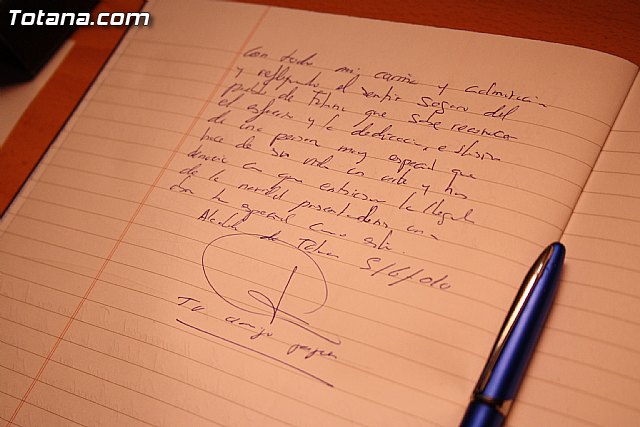 Totana.com
Con todo mi cariño y admiración
y reflejando el sentir seguro del
pueblo de Totana que sabe reconocer
el esfuerzo y la dedicación, e ilusión
de una persona muy especial que
hace de su vida un arte y nos
de la navidad
con tu especial como esta.
Alcalde de Totana 5/6/2010
Tu amigo